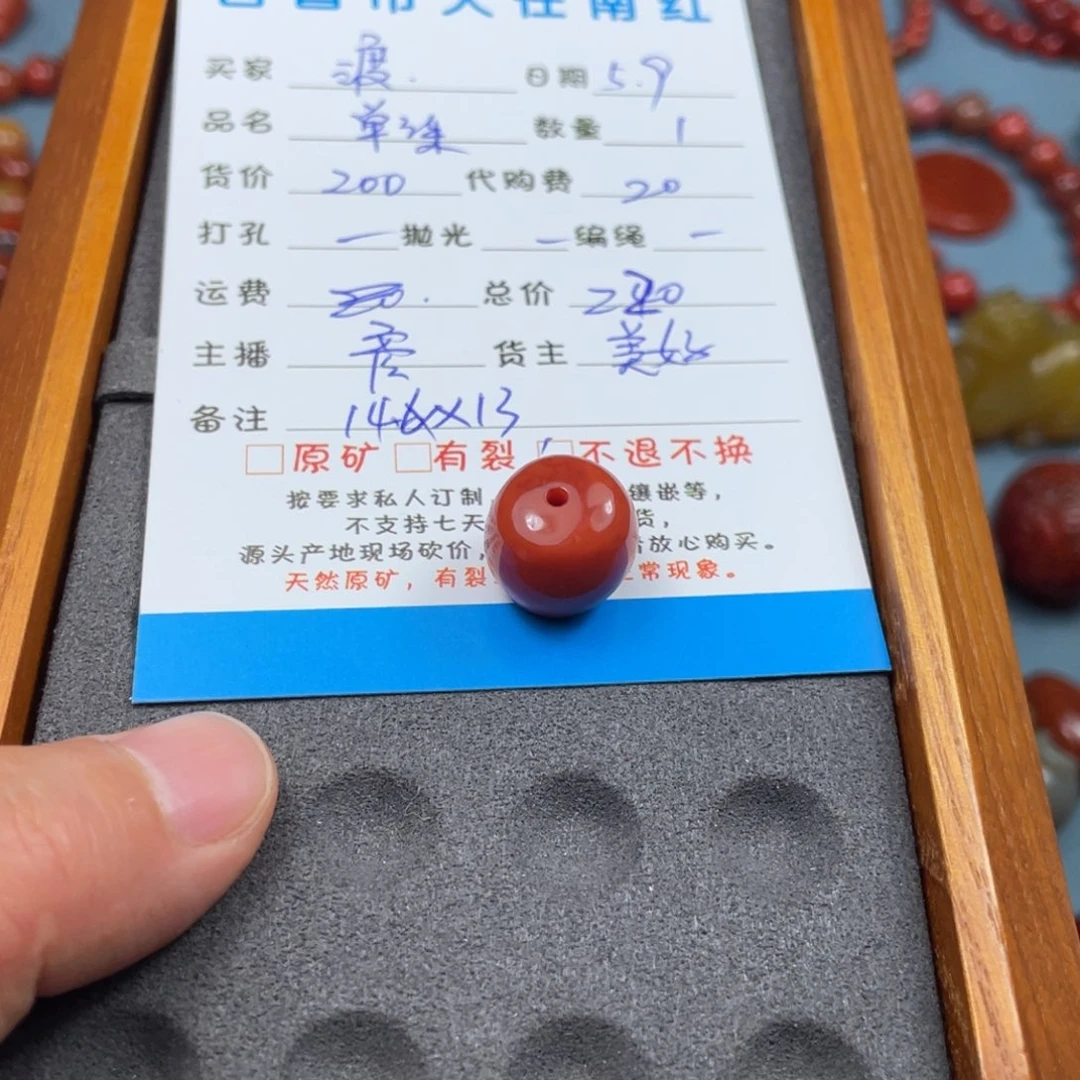 南红
买家 渡. 日期 5.9
品名 单珠 数量 1
货价 200 代购费 20
打孔 一 抛光 一 编绳 一
运费 总价 220
主播 货主 美好
备注 14.6×13
□原矿 □有裂 □不退不换
按要求私人订制 镶嵌等，
不支持七天 货，
源头产地现场砍价， 放心购买。
天然原矿，有裂 常现象。